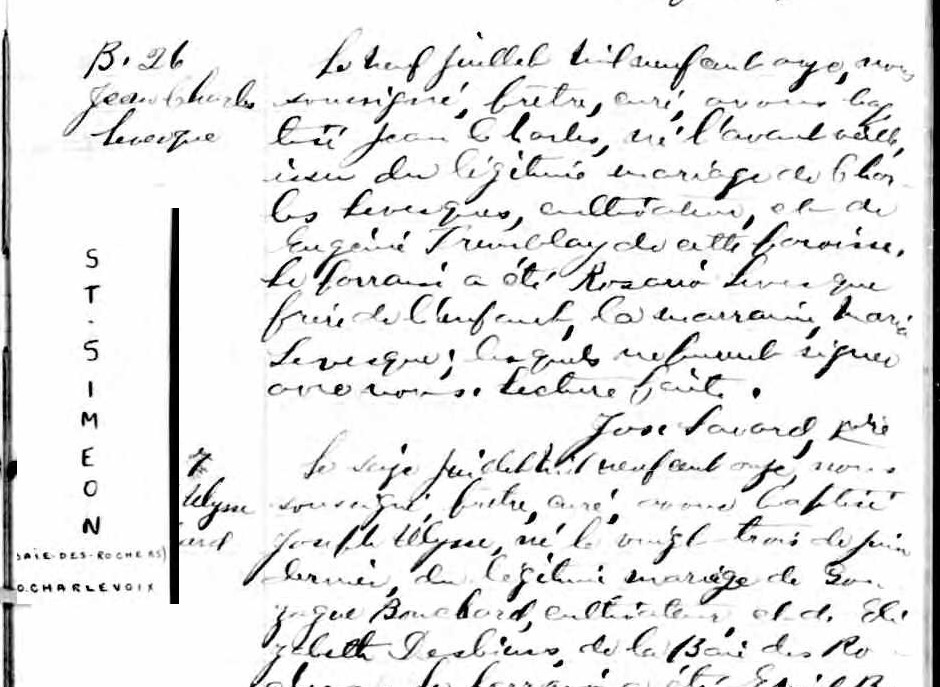 B. 26
Jean Charles
Levesque
Le neuf juillet mil neuf cent onze, nous
soussigné, prêtre, curé, avons bap
tisé Jean Charles, né l'avant veille,
issu du légitime mariage de Char-
les Levesques, cultivateur, et de
Eugénie Tremblay de cette paroisse.
Le parrain a été Rosario Levesque
frère de l'enfant, la marraine, Maria
Levesque; lesquels ne purent signer
avec nous. Lecture faite.
Jos. Savard, ptre
ST-SIMEON
(BAIE-DES-ROCHERS)
O.CHARLEVOIX
7
Ulysse
ard
Le seize juillet mil neuf cent onze, nous
soussigné, prêtre, curé, avons baptisé
Joseph Ulysse, né le vingt-trois de juin
dernier, du légitime mariage de Gon
zague Bouchard, cultivateur, et de Eli
zabeth Desbiens, de la Baie des Ro-
Le parrain a été